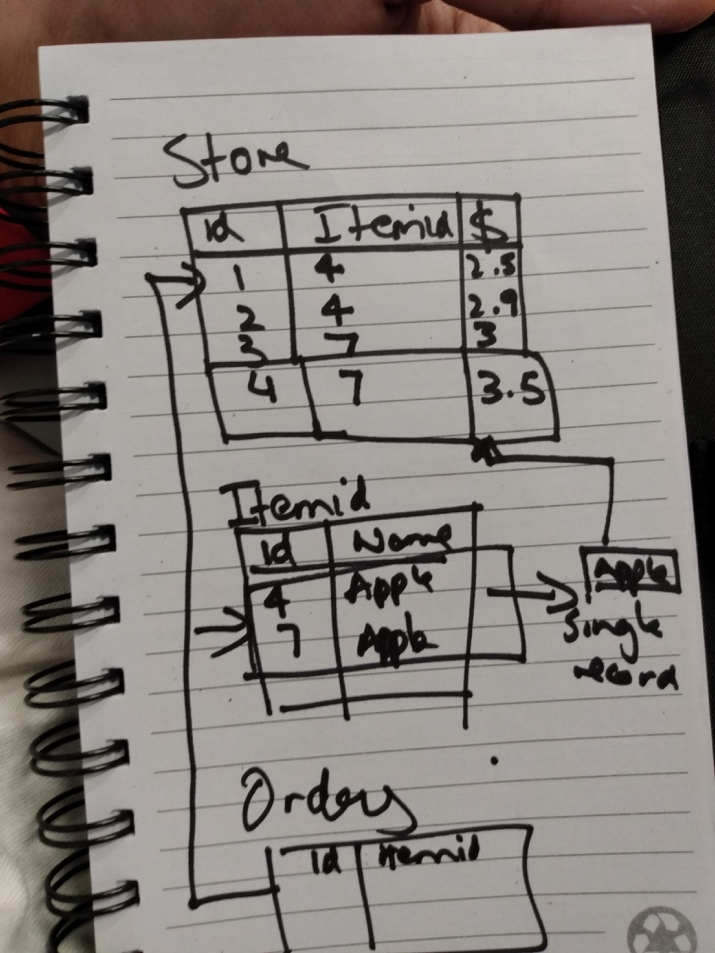 Store
id Itemid $
1 4 2.5
2 4 2.9
3 7 3
4 7 3.5
Itemid
id Name
4 Apple
7 Apple
Apple
Single
record
Orders
id itemid